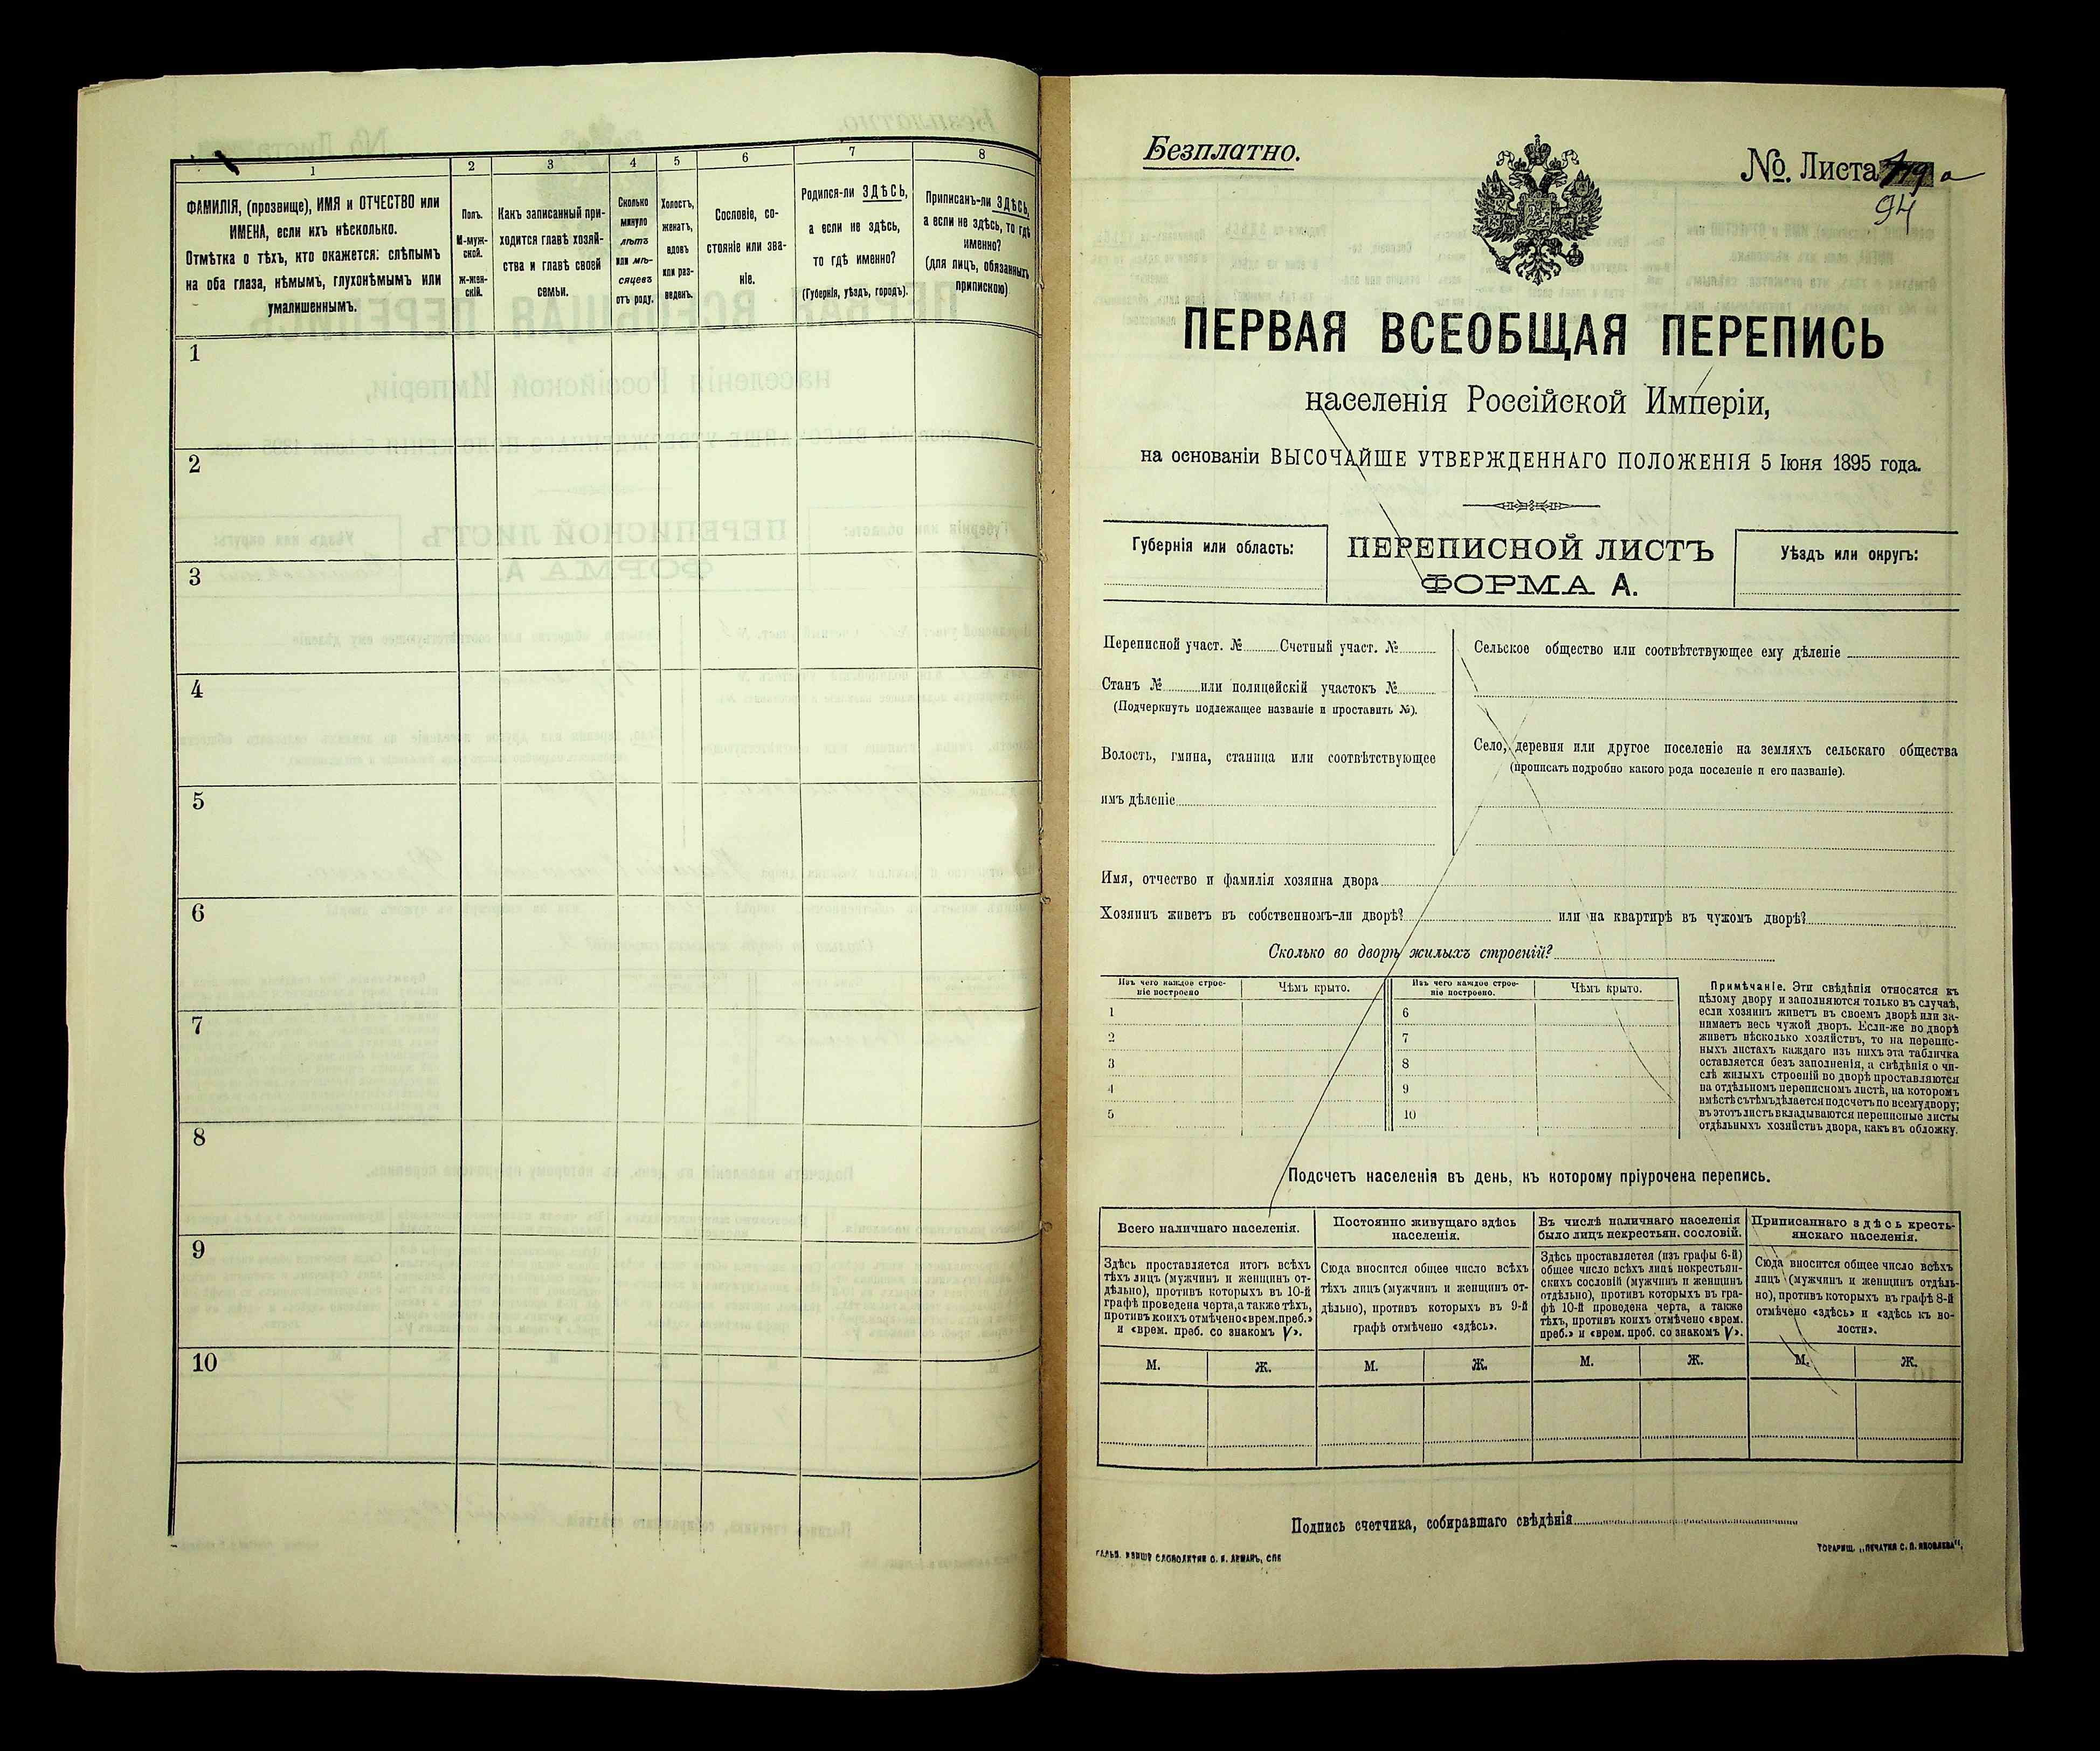 1
2
3
4
5
6
7
8
ФАМИЛІЯ, (прозвище), ИМЯ и ОТЧЕСТВО или
ИМЕНА, если ихъ нѣсколько.
Отмѣтка о тѣхъ, кто окажется: слѣпымъ
на оба глаза, нѣмымъ, глухонѣмымъ или
умалишеннымъ.
Полъ.
М-муж-
ской.
ж-жен-
скій.
Какъ записанный при-
ходится главѣ хозяй-
ства и главѣ своей
семьи.
Сколько
минуло
лѣтъ
или мѣ-
сяцевъ
отъ роду.
Холостъ,
женатъ,
вдовъ
или раз-
веденъ.
Сословіе, со-
стояніе или зва-
ніе.
Родился-ли ЗДѢСЬ,
а если не здѣсь,
то гдѣ именно?
(Губернія, уѣздъ, городъ).
Приписанъ-ли ЗДѢСЬ,
а если не здѣсь, то гдѣ
именно?
(для лицъ, обязанныхъ
припискою)
1
2
3
4
5
6
7
8
9
10
Безплатно.
№. Листа 119 а
94
ПЕРВАЯ ВСЕОБЩАЯ ПЕРЕПИСЬ
населенія Россійской Имперіи,
на основаніи ВЫСОЧАЙШЕ УТВЕРЖДЕННАГО ПОЛОЖЕНІЯ 5 Іюня 1895 года.
Губернія или область:
ПЕРЕПИСНОЙ ЛИСТЪ
ФОРМА А.
Уѣздъ или округъ:
Переписной участ. № Счетный участ. №
Станъ № или полицейскій участокъ №
(Подчеркнуть подлежащее названіе и проставить №).
Волость, гмина, станица или соотвѣтствующее
имъ дѣленіе
Сельское общество или соотвѣтствующее ему дѣленіе
Село, деревня или другое поселеніе на земляхъ сельскаго общества
(прописать подробно какого рода поселеніе и его названіе).
Имя, отчество и фамилія хозяина двора
Хозяинъ живетъ въ собственномъ-ли дворѣ? или на квартирѣ въ чужомъ дворѣ?
Сколько во дворѣ жилыхъ строеній?
Изъ чего каждое строе-
ніе построено
Чѣмъ крыто.
Изъ чего каждое строе-
ніе построено.
Чѣмъ крыто.
1
2
3
4
5
6
7
8
9
10
Примѣчаніе. Эти свѣдѣнія относятся къ
цѣлому двору и заполняются только въ случаѣ,
если хозяинъ живетъ въ своемъ дворѣ или за-
нимаетъ весь чужой дворъ. Если-же во дворѣ
живетъ нѣсколько хозяйствъ, то на перепис-
ныхъ листахъ каждаго изъ нихъ эта табличка
оставляется безъ заполненія, а свѣдѣнія о чи-
слѣ жилыхъ строеній во дворѣ проставляются
на отдѣльномъ переписномъ листѣ, на которомъ
вмѣстѣ съ тѣмъ дѣлается подсчетъ по всему двору;
въ этотъ листъ вкладываются переписные листы
отдѣльныхъ хозяйствъ двора, какъ въ обложку.
Подсчетъ населенія въ день, къ которому пріурочена перепись.
Всего наличнаго населенія.
Здѣсь проставляется итогъ всѣхъ
тѣхъ лицъ (мужчинъ и женщинъ от-
дѣльно), противъ которыхъ въ 10-й
графѣ проведена черта, а также тѣхъ,
противъ коихъ отмѣчено «врем. преб.»
и «врем. преб. со знакомъ V».
Постоянно живущаго здѣсь
населенія.
Сюда вносится общее число всѣхъ
тѣхъ лицъ (мужчинъ и женщинъ от-
дѣльно), противъ которыхъ въ 9-й
графѣ отмѣчено «здѣсь».
Въ числѣ наличнаго населенія
было лицъ некрестьян. сословій.
Здѣсь проставляется (изъ графы 6-й)
общее число всѣхъ лицъ некрестьян-
скихъ сословій (мужчинъ и женщинъ
отдѣльно), противъ которыхъ въ гра-
фѣ 10-й проведена черта, а также
тѣхъ, противъ коихъ отмѣчено «врем.
преб.» и «врем. преб. со знакомъ V».
Приписаннаго здѣсь кресть-
янскаго населенія.
Сюда вносится общее число всѣхъ
лицъ (мужчинъ и женщинъ отдѣль-
но), противъ которыхъ въ графѣ 8-й
отмѣчено «здѣсь» и «здѣсь къ во-
лости».
М.
Ж.
М.
Ж.
М.
Ж.
М.
Ж.
Подпись счетчика, собиравшаго свѣдѣнія
СЛОВОЛИТНЯ О. И. ЛЕМАНЪ, СПБ
ТОВАРИЩ. „ПЕЧАТНЯ С. П. ЯКОВЛЕВА“,